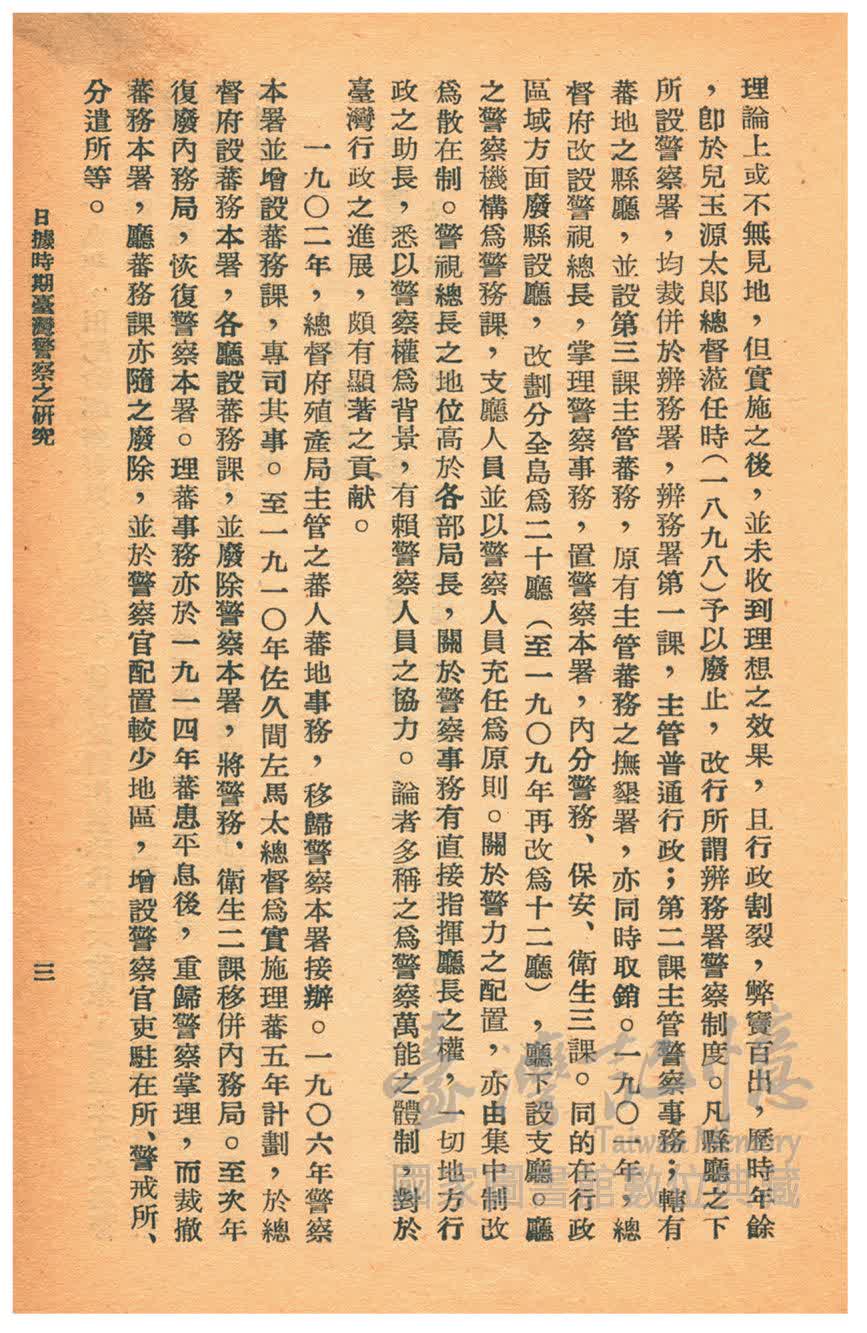 理論上或不無見地，但實施之後，並未收到理想之效果，且行政割裂，弊竇百出，歷時年餘
，卽於兒玉源太郎總督蒞任時（一八九八）予以廢止，改行所謂辨務署警察制度。凡縣廳之下
所設警察署，均裁併於辨務署，辨務署第一課，主管普通行政；第二課主管警察事務；轄有
蕃地之縣廳，並設第三課主管蕃務，原有主管蕃務之撫墾署，亦同時取銷。一九〇一年，總
督府改設警視總長，掌理警察事務，置警察本署，內分警務、保安、衛生三課。同的在行政
區域方面廢縣設廳，改劃分全島爲二十廳（至一九〇九年再改爲十二廳），廳下設支廳。廳
之警察機構爲警務課，支廳人員並以警察人員充任爲原則。關於警力之配置，亦由集中制改
爲散在制。警視總長之地位高於各部局長，關於警察事務有直接指揮廳長之權，一切地方行
政之助長，悉以警察權爲背景，有賴警察人員之協力。論者多稱之爲警察萬能之體制，對於
臺灣行政之進展，頗有顯著之貢献。
一九〇二年，總督府殖產局主管之蕃人蕃地事務，移歸警察本署接辦。一九〇六年警察
本署並增設蕃務課，專司其事。至一九一〇年佐久間左馬太總督爲實施理蕃五年計劃，於總
督府設蕃務本署，各廳設蕃務課，並廢除警察本署，將警務、衛生二課移併內務局。至次年
復廢內務局，恢復警察本署。理蕃事務亦於一九一四年蕃患平息後，重歸警察掌理，而裁撤
蕃務本署，廳蕃務課亦隨之廢除，並於警察官配置較少地區，增設警察官吏駐在所、警戒所、
分遣所等。
日據時期臺灣警察之研究
三
臺灣記憶
Taiwan Memory
國家圖書館數位典藏